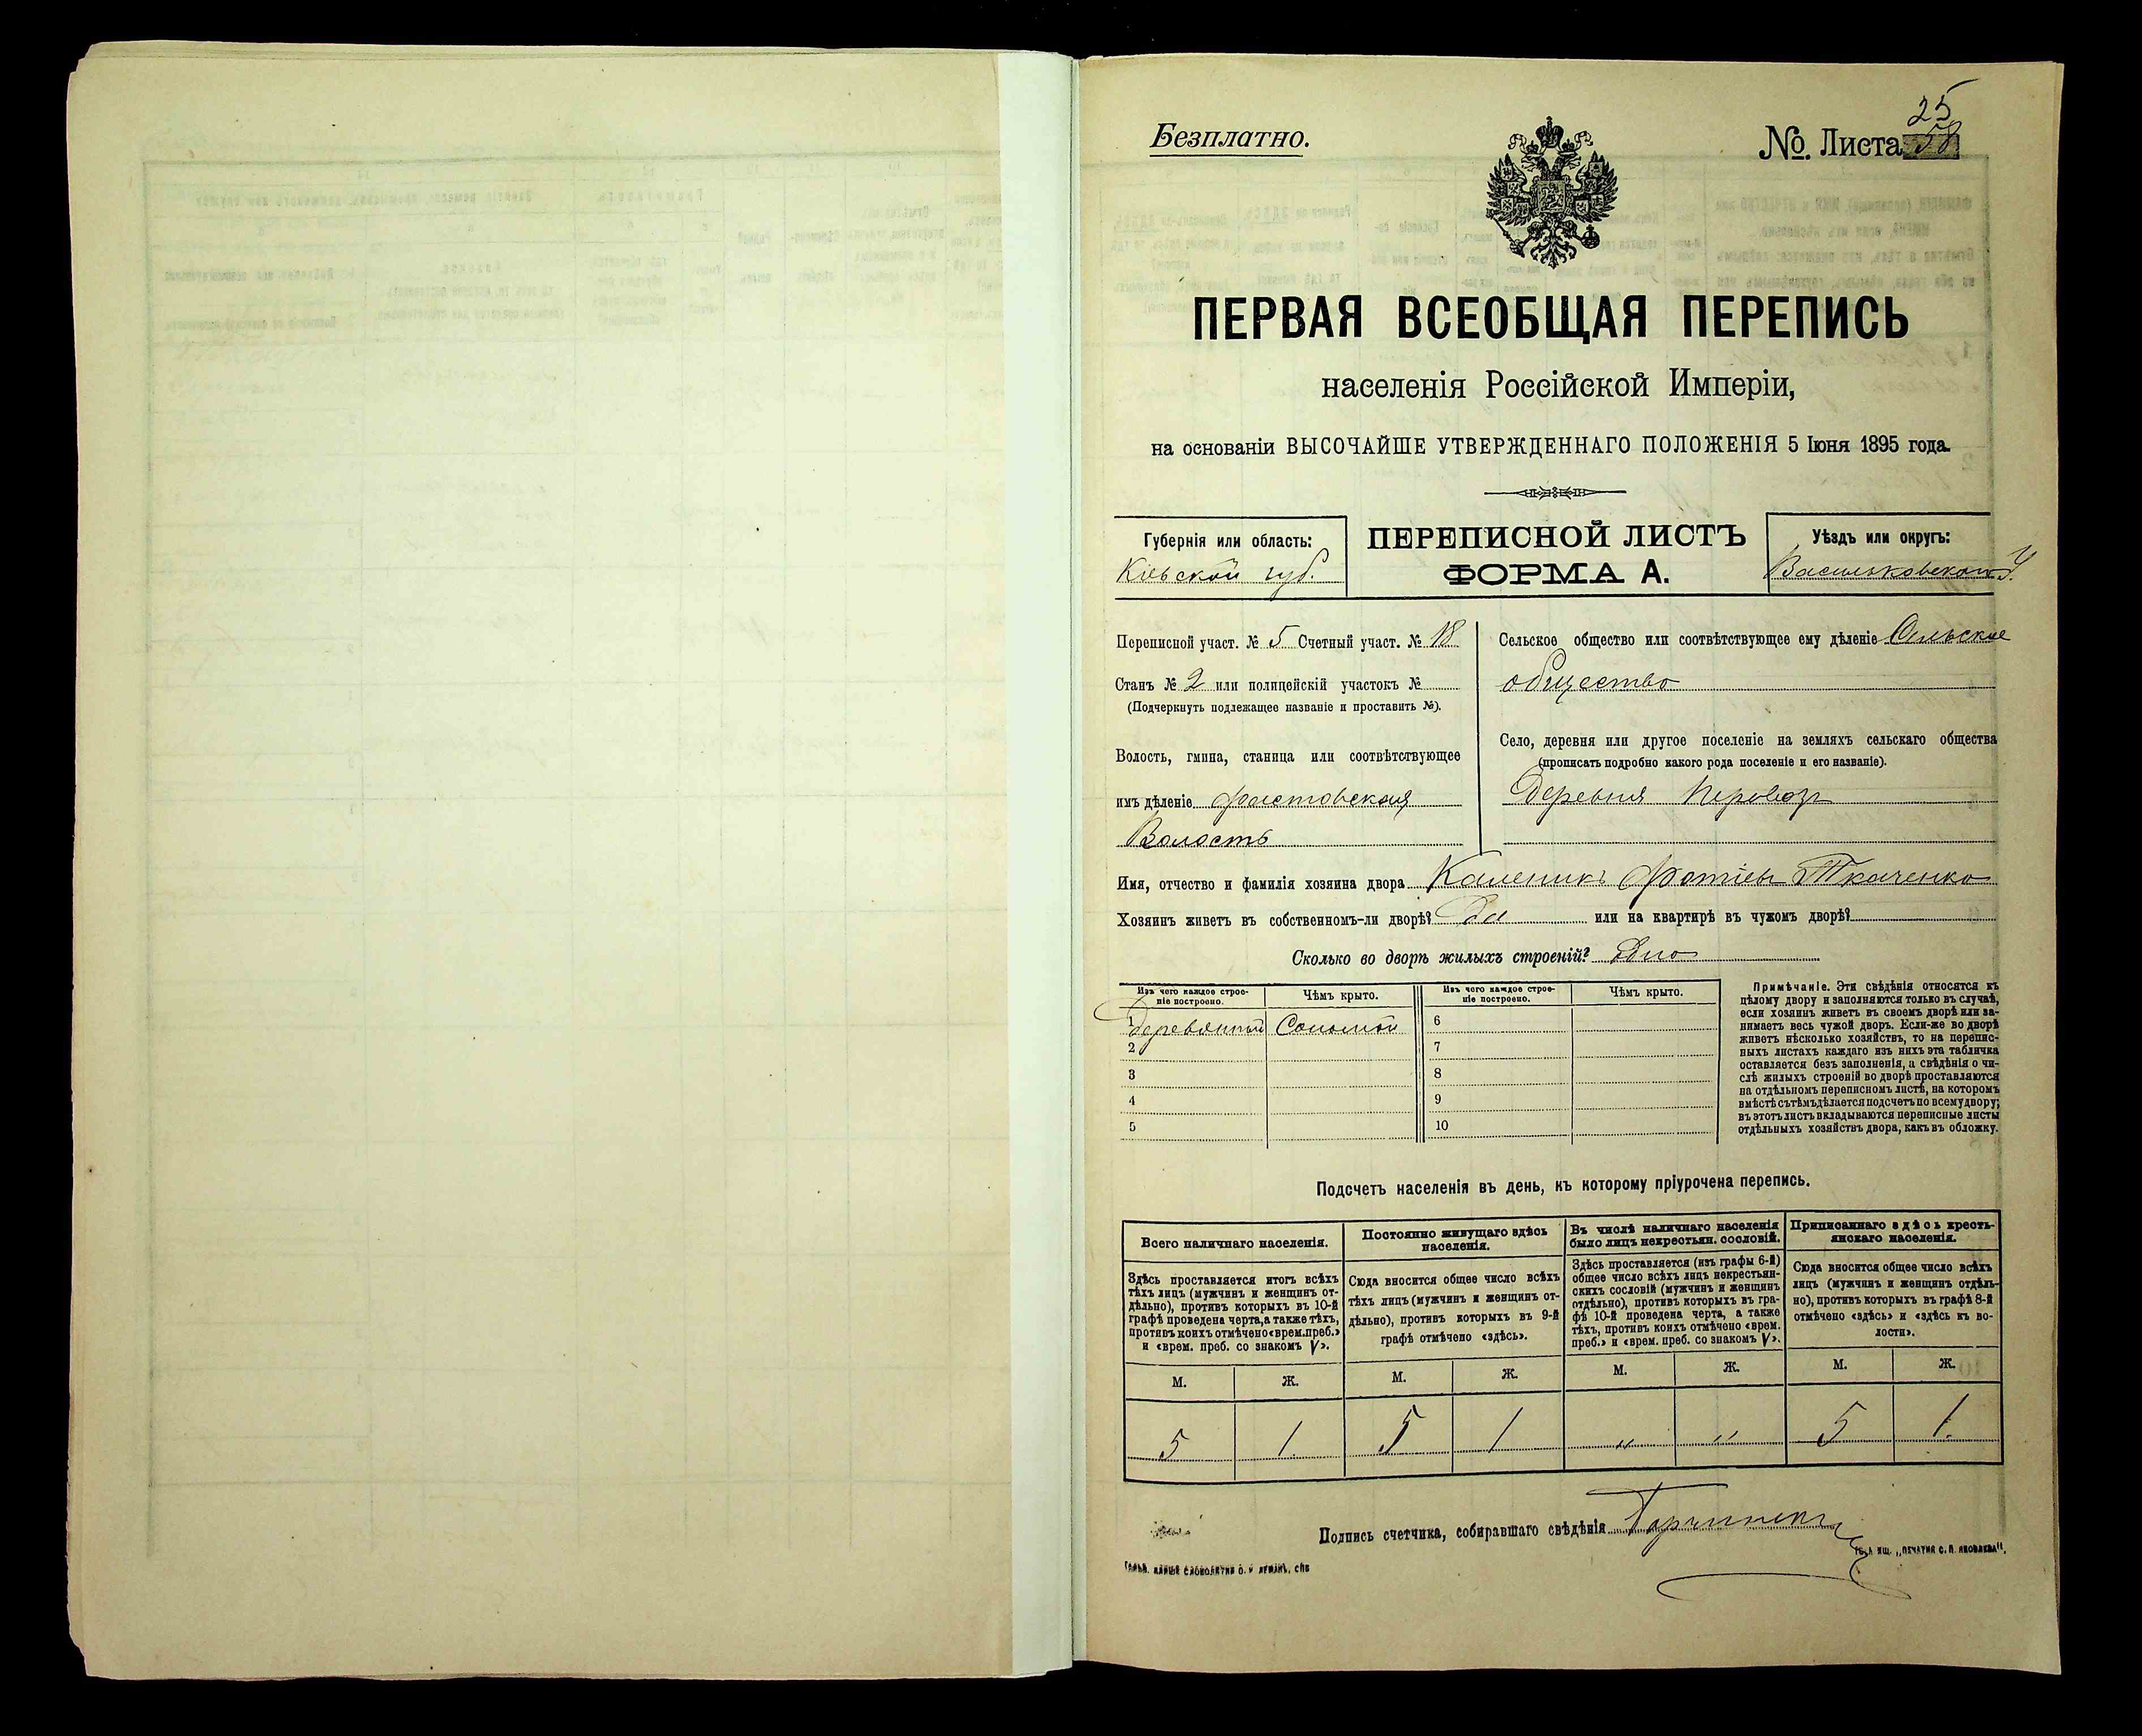 Безплатно.
25
№. Листа 58
ПЕРВАЯ ВСЕОБЩАЯ ПЕРЕПИСЬ
населенія Россійской Имперіи,
на основаніи ВЫСОЧАЙШЕ УТВЕРЖДЕННАГО ПОЛОЖЕНІЯ 5 Іюня 1895 года.
Губернія или область:
Кіевской губ.
ПЕРЕПИСНОЙ ЛИСТЪ
ФОРМА А.
Уѣздъ или округъ:
Васильковского у.
Переписной участ. № 5 Счетный участ. № 18
Станъ № 2 или полицейскій участокъ №
(Подчеркнуть подлежащее названіе и проставить №).
Волость, гмина, станица или соотвѣтствующее
имъ дѣленіе Фастовская
Волость
Сельское общество или соотвѣтствующее ему дѣленіе Сельское
общество
Село, деревня или другое поселеніе на земляхъ сельскаго общества
(прописать подробно какого рода поселеніе и его названіе).
Деревня Перевозъ
Имя, отчество и фамилія хозяина двора Каленикъ Фотіевъ Ткаченко
Хозяинъ живетъ въ собственномъ-ли дворѣ? Да или на квартирѣ въ чужомъ дворѣ?
Сколько во дворѣ жилыхъ строеній? Одно
Изъ чего каждое строе-
ніе построено.
Чѣмъ крыто.
Изъ чего каждое строе-
ніе построено.
Чѣмъ крыто.
1 Деревянный Соломой
2
3
4
5
6
7
8
9
10
Примѣчаніе. Эти свѣдѣнія относятся къ
цѣлому двору и заполняются только въ случаѣ,
если хозяинъ живетъ въ своемъ дворѣ или за-
нимаетъ весь чужой дворъ. Если-же во дворѣ
живетъ нѣсколько хозяйствъ, то на перепис-
ныхъ листахъ каждаго изъ нихъ эта табличка
оставляется безъ заполненія, а свѣдѣнія о чи-
слѣ жилыхъ строеній во дворѣ проставляются
на отдѣльномъ переписномъ листѣ, на которомъ
вмѣстѣ съ тѣмъ дѣлается подсчетъ по всему двору;
въ этотъ листъ вкладываются переписные листы
отдѣльныхъ хозяйствъ двора, какъ въ обложку.
Подсчетъ населенія въ день, къ которому пріурочена перепись.
Всего наличнаго населенія.
Здѣсь проставляется итогъ всѣхъ
тѣхъ лицъ (мужчинъ и женщинъ от-
дѣльно), противъ которыхъ въ 10-й
графѣ проведена черта, а также тѣхъ,
противъ коихъ отмѣчено «врем. преб.»
и «врем. преб. со знакомъ V».
Постоянно живущаго здѣсь
населенія.
Сюда вносится общее число всѣхъ
тѣхъ лицъ (мужчинъ и женщинъ от-
дѣльно), противъ которыхъ въ 9-й
графѣ отмѣчено «здѣсь».
Въ числѣ наличнаго населенія
было лицъ некрестьян. сословій.
Здѣсь проставляется (изъ графы 6-й)
общее число всѣхъ лицъ некрестьян-
скихъ сословій (мужчинъ и женщинъ
отдѣльно), противъ которыхъ въ гра-
фѣ 10-й проведена черта, а также
тѣхъ, противъ коихъ отмѣчено «врем.
преб.» и «врем. преб. со знакомъ V».
Приписаннаго здѣсь кресть-
янскаго населенія.
Сюда вносится общее число всѣхъ
лицъ (мужчинъ и женщинъ отдѣль-
но), противъ которыхъ въ графѣ 8-й
отмѣчено «здѣсь» и «здѣсь къ во-
лости».
М. Ж. М. Ж. М. Ж. М. Ж.
5 1. 5 1 " " 5 1.
Подпись счетчика, собиравшаго свѣдѣнія